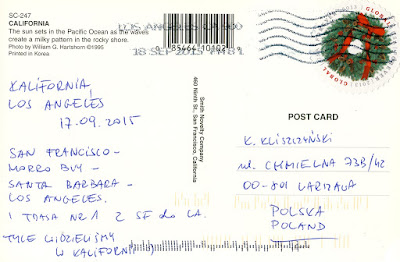 SC-247
CALIFORNIA
The sun sets in the Pacific Ocean as the waves
create a milky pattern in the rocky shore.
Photo by William G. Hartshorn ©1995
Printed in Korea
LOS ANGELES CA 900
18 SEP 2015 PM 8 L
0 85464 10102
GLOBAL
GLOBAL
KALIFORNIA,
LOS ANGELES
17.09.2015
SAN FRANCISCO –
MORRO BUY –
SANTA BARBARA –
LOS ANGELES.
I TRASA NR 1 Z SF do LA.
TYLE WIDZIELIŚMY
W KALIFORNII
Smith Novelty Company
460 Ninth St., San Francisco, California
POST CARD
K. KLISZCZYŃSKI
ul. CHMIELNA 73B/42
00-801 WARSZAWA
POLSKA
POLAND